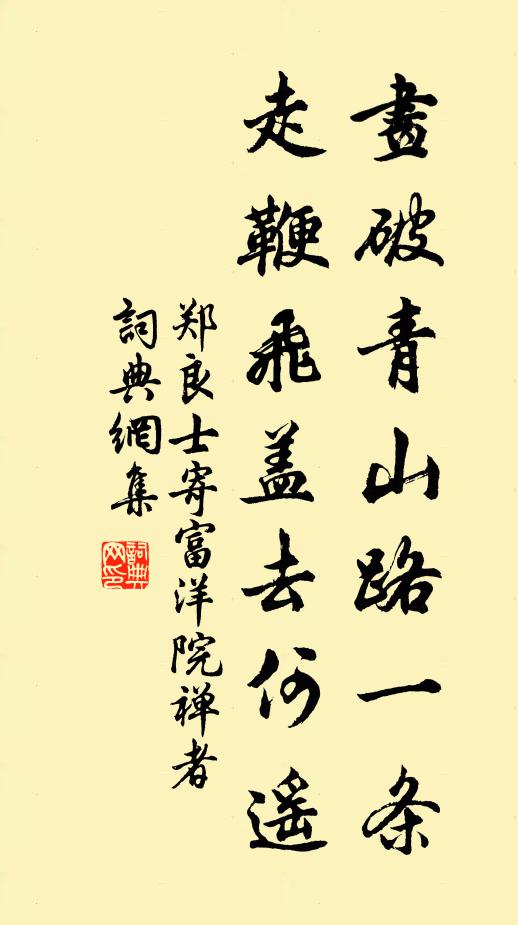 畫破青山路一条
走鞭飛盖去何遥
郑良士寄富洋院禅者
詞典網集
詞典
网印